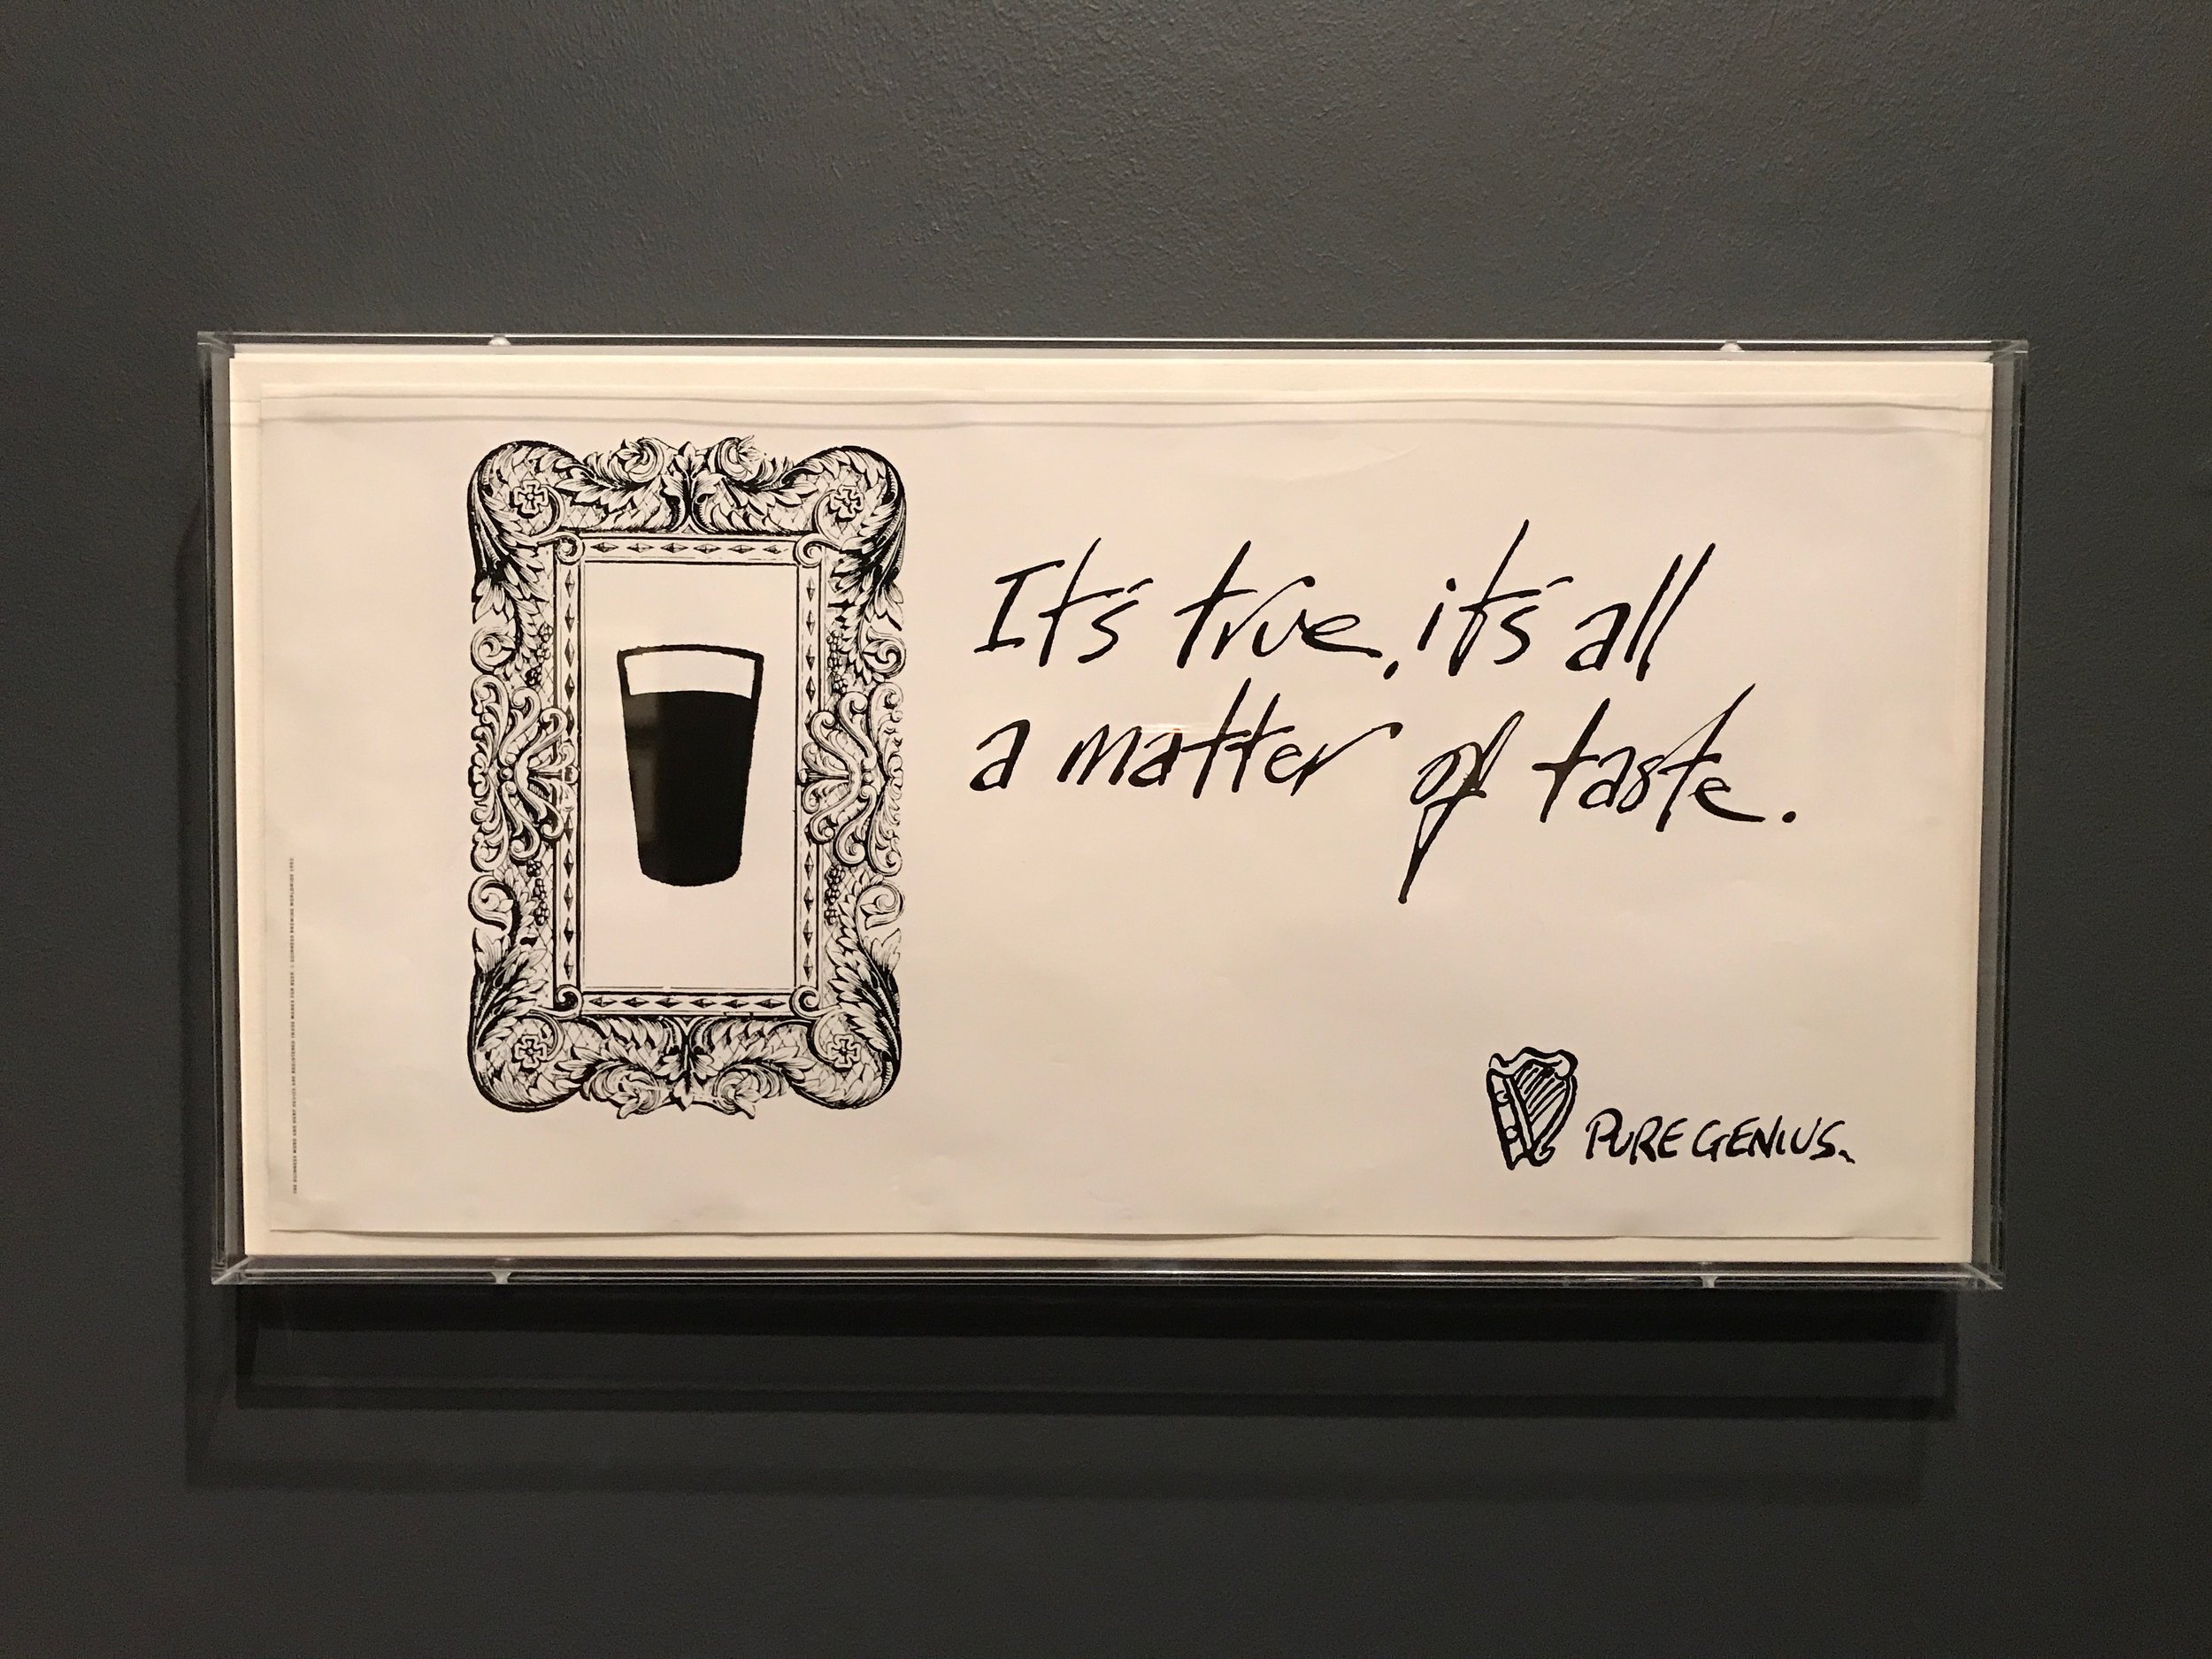 It's true, it's all
a matter of taste.
PURE GENIUS.
THE GUINNESS WORD AND HARP DEVICE ARE REGISTERED TRADE MARKS FOR BEER © GUINNESS BREWING WORLDWIDE